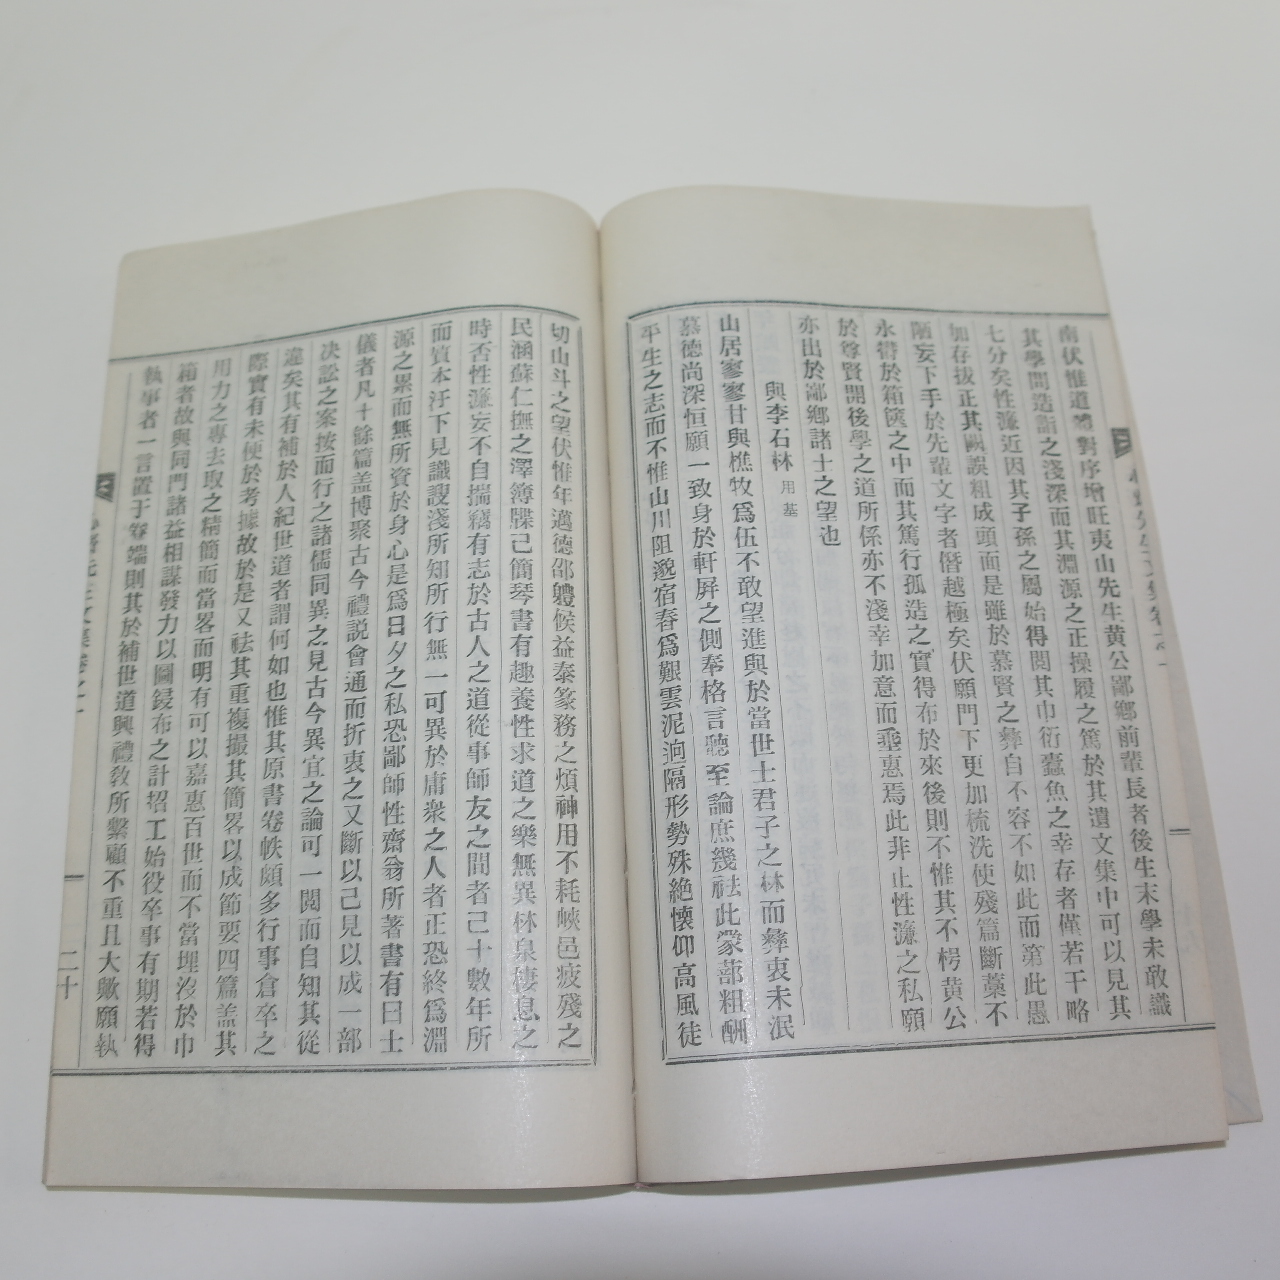 南伏惟道體對序增旺夷山先生黄公鄙鄉前輩長者後生末學未敢識
其學問造詣之淺深而其淵源之正操履之篤於其遺文集中可以見其
七分矣性濂近因其子孫之屬始得閱其巾衍蠹魚之幸存者僅若干略
加存拔正其闕誤粗成頭面是雖於慕賢之彝自不容不如此而第此愚
陋妄下手於先輩文字者僭越極矣伏願門下更加梳洗使殘篇斷藁不
永欎於箱篋之中而其篤行孤造之實得布於來後則不惟其不楞黄公
於尊賢開後學之道所係亦不淺幸加意而垂惠焉此非止性濂之私願
亦出於鄙鄉諸士之望也
與李石林 用基
山居寥寥甘與樵牧爲伍不敢望進與於當世士君子之林而彝衷未泯
慕德尚深恒願一致身於軒屏之側奉格言聽至論庶幾祛此蒙蔀粗酬
平生之志而不惟山川阻邈宿舂爲艱雲泥逈隔形勢殊絶懐仰高風徒
切山斗之望伏惟年邁德邵軆候益泰篆務之煩神用不耗峽邑疲殘之
民涵蘇仁撫之澤簿牒己簡琴書有趣養性求道之樂無異林泉棲息之
時否性濂妄不自揣竊有志於古人之道從事師友之間者己十數年所
而質本汙下見識謏淺所知所行無一可異於庸衆之人者正恐終爲淵
源之累而無所資於身心是爲日夕之私恐鄙師性齋翁所著書有曰士
儀者凡十餘篇盖博聚古今禮説會通而折衷之又斷以己見以成一部
决訟之案按而行之諸儒同異之見古今異宜之論可一閱而自知其從
違矣其有補於人紀世道者謂何如也惟其原書卷帙頗多行事倉卒之
際實有未便於考據故於是又祛其重複撮其簡畧以成節要四篇盖其
用力之專去取之精簡而當畧而明有可以嘉惠百世而不當埋沒於巾
箱者故與同門諸益相謀發力以圖鋟布之計招工始役卒事有期若得
執事者一言置于卷端則其於補世道興禮敎所繫顧不重且大歟願執
二十